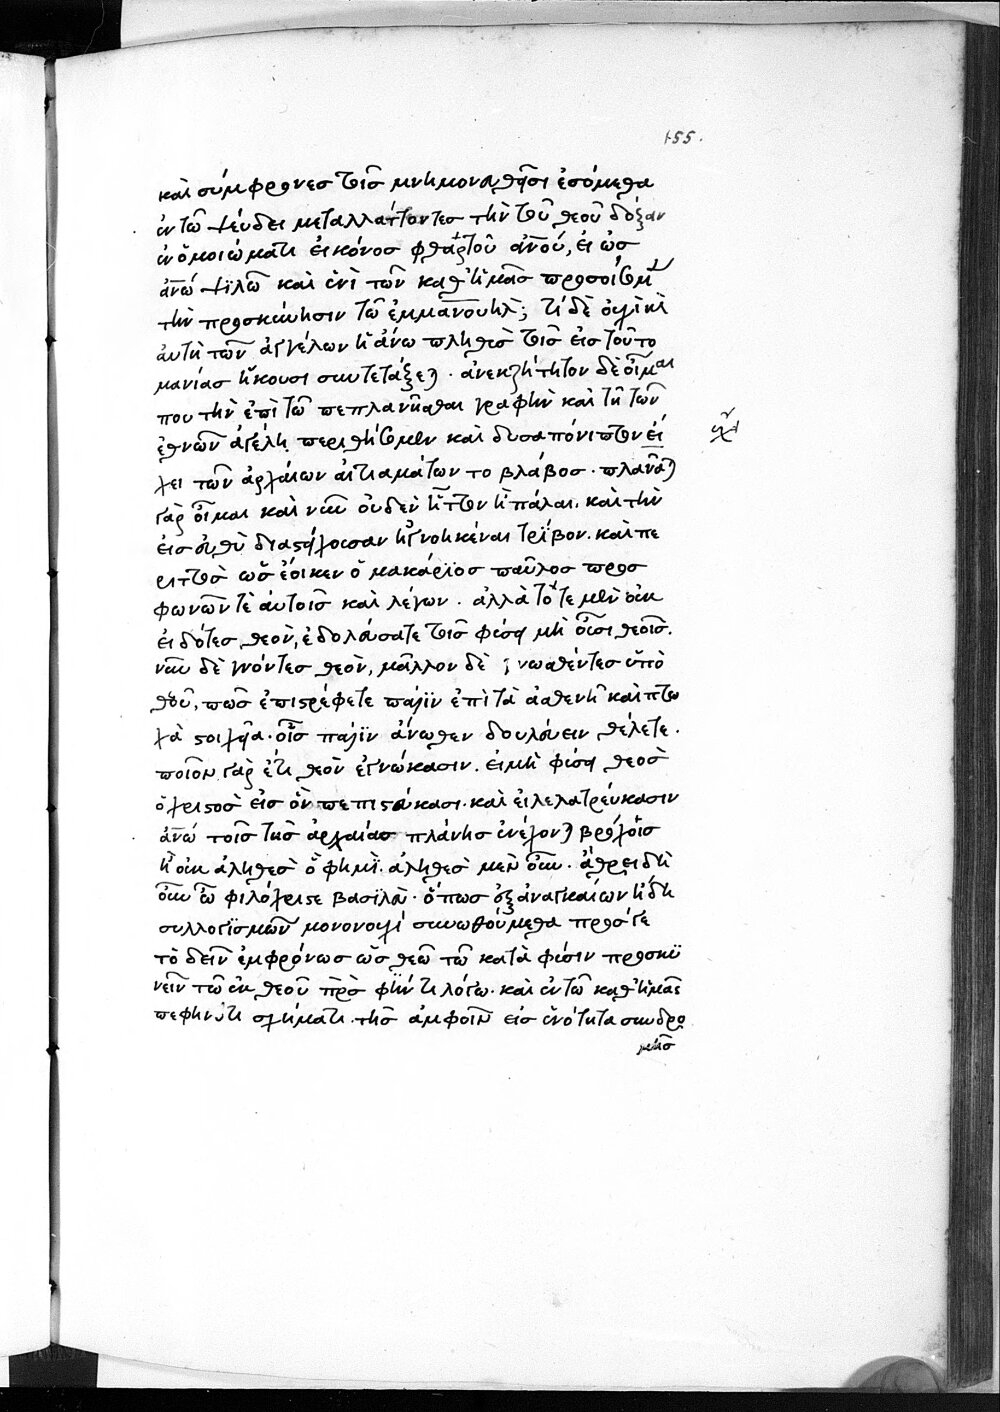 155.
καὶ σύμφρονες τοῖς μνημονευθεῖσι ἐσόμεθα
ἐν τῶ ψεύδει μεταλλάττοντες τὴν τοῦ θεοῦ δόξαν
ἐν ὁμοιώματι εἰκόνος φθαρτοῦ ἀνου, εἰ ὡς
ἀνω ψιλῶ καὶ ἑνὶ τῶν καθ' ἡμᾶς προσοίσομεν
τὴν προσκύνησιν τῶ ἐμμανουὴλ; τί δὲ οὐχὶ καὶ
αὐτὴ τῶν ἀγγέλων ἡ ἄνω πληθὺς τοῖς εἰς τοῦτο
μανίας ἥκουσι συντετάξεται. ἀνεκζήτητον δὲ οἶμαι
που τὴν ἐπὶ τῶ πεπλανῆσθαι γραφὴν καὶ τῆ τῶν
ἐθνῶν ἀγέλη περιθήσομεν καὶ δυσαπόνιπτον εἰ
χει τῶν ἀρχαίων αἰτιαμάτων το βλάβος. πλανᾶται
γὰρ οἶμαι καὶ νῦν οὐδὲν ἧττον ἢ πάλαι. καὶ τὴν
εἰς εὐθὺ διαφέρουσαν ἠγνοηκέναι τρίβον. καὶ πε
ριττὸς ὡς ἔοικεν ὁ μακάριος παῦλος προσ
φωνῶν τὲ αὐτοῖς καὶ λέγων. ἀλλὰ τότε μὲν οὐκ
εἰδότες θεὸν, ἐδουλεύσατε τοῖς φύσει μὴ οὖσι θεοῖς.
νῦν δὲ γνόντες θεὸν, μᾶλλον δὲ γνωσθέντες ὑπὸ
θεοῦ, πῶς ἐπιστρέφετε πάλιν ἐπὶ τὰ ἀσθενῆ καὶ πτω
χὰ στοιχεῖα. οἷς πάλιν ἄνωθεν δουλεύειν θέλετε.
ποῖον γὰρ ἔτι θεὸν ἐγνώκασιν. εἰ μὴ φύσει θεὸς
ὁ χριστὸς εἰς ὃν πεπιστεύκασι. καὶ εἰ λελατρεύκασιν
ἀνω τοῖς τῆς ἀρχαίας πλάνης ἐνέχονται βρόχοις
ἢ οὐκ ἀληθὲς ὅ φημι. ἀληθὲς μὲν οὖν. ἄθρει δὴ
οὖν ὦ φιλόχριστε βασιλεῦ. ὅπως ἐξ ἀναγκαίων ἤδη
συλλογισμῶν μονονουχί συνωθούμεθα πρός γε
τὸ δεῖν ἐμφρόνως ὡς θεῶ τῶ κατὰ φύσιν προσκυ
νεῖν τῶ ἐκ θεοῦ πρς φηνότι λόγω. καὶ ἐν τῶ καθ' ἡμᾶς
πεφηνότι σχήματι. τῆς ἀμφοῖν εἰς ἑνότητα συνδρο
μῆς